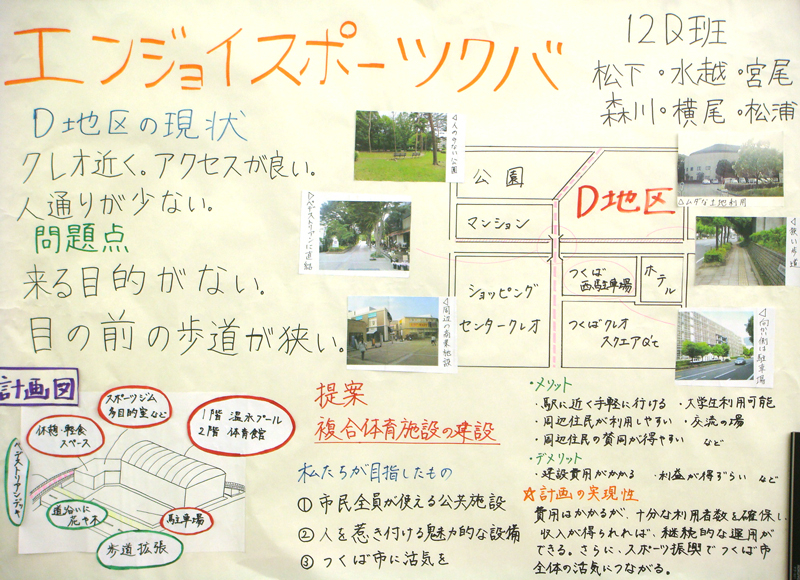 エンジョイスポーツクバ
12D班
松下・水越・宮尾
森川・横尾・松浦
D地区の現状
クレオ近く。アクセスが良い。
人通りが少ない。
問題点
来る目的がない。
目の前の歩道が狭い。
◁人の少ない公園
▷ペデストリアンに直結
◁周辺の商業施設
公園
マンション
ショッピング
センタークレオ
D地区
つくば
西駐車場
ホテル
つくばクレオ
スクエアQ't
△ムダな土地利用
◁狭い歩道
◁向かい側は駐車場
計画図
スポーツジム
多目的室など
休憩・軽食
スペース
1階 温水プール
2階 体育館
ペデストリアンデッキ
道沿いに
花や木
駐車場
歩道拡張
提案
複合体育施設の建設
私たちが目指したもの
①市民全員が使える公共施設
②人を惹き付ける魅力的な設備
③つくば市に活気を
・メリット
・駅に近く手軽に行ける ・大学生利用可能
・周辺住民が利用しやすい ・交流の場
・周辺住民の賛同が得やすい など
・デメリット
・建設費用がかかる ・利益が得ずらい など
☆計画の実現性
費用はかかるが、十分な利用者数を確保し、
収入が得られれば、継続的な運用が
できる。さらに、スポーツ振興でつくば市
全体の活気につながる。